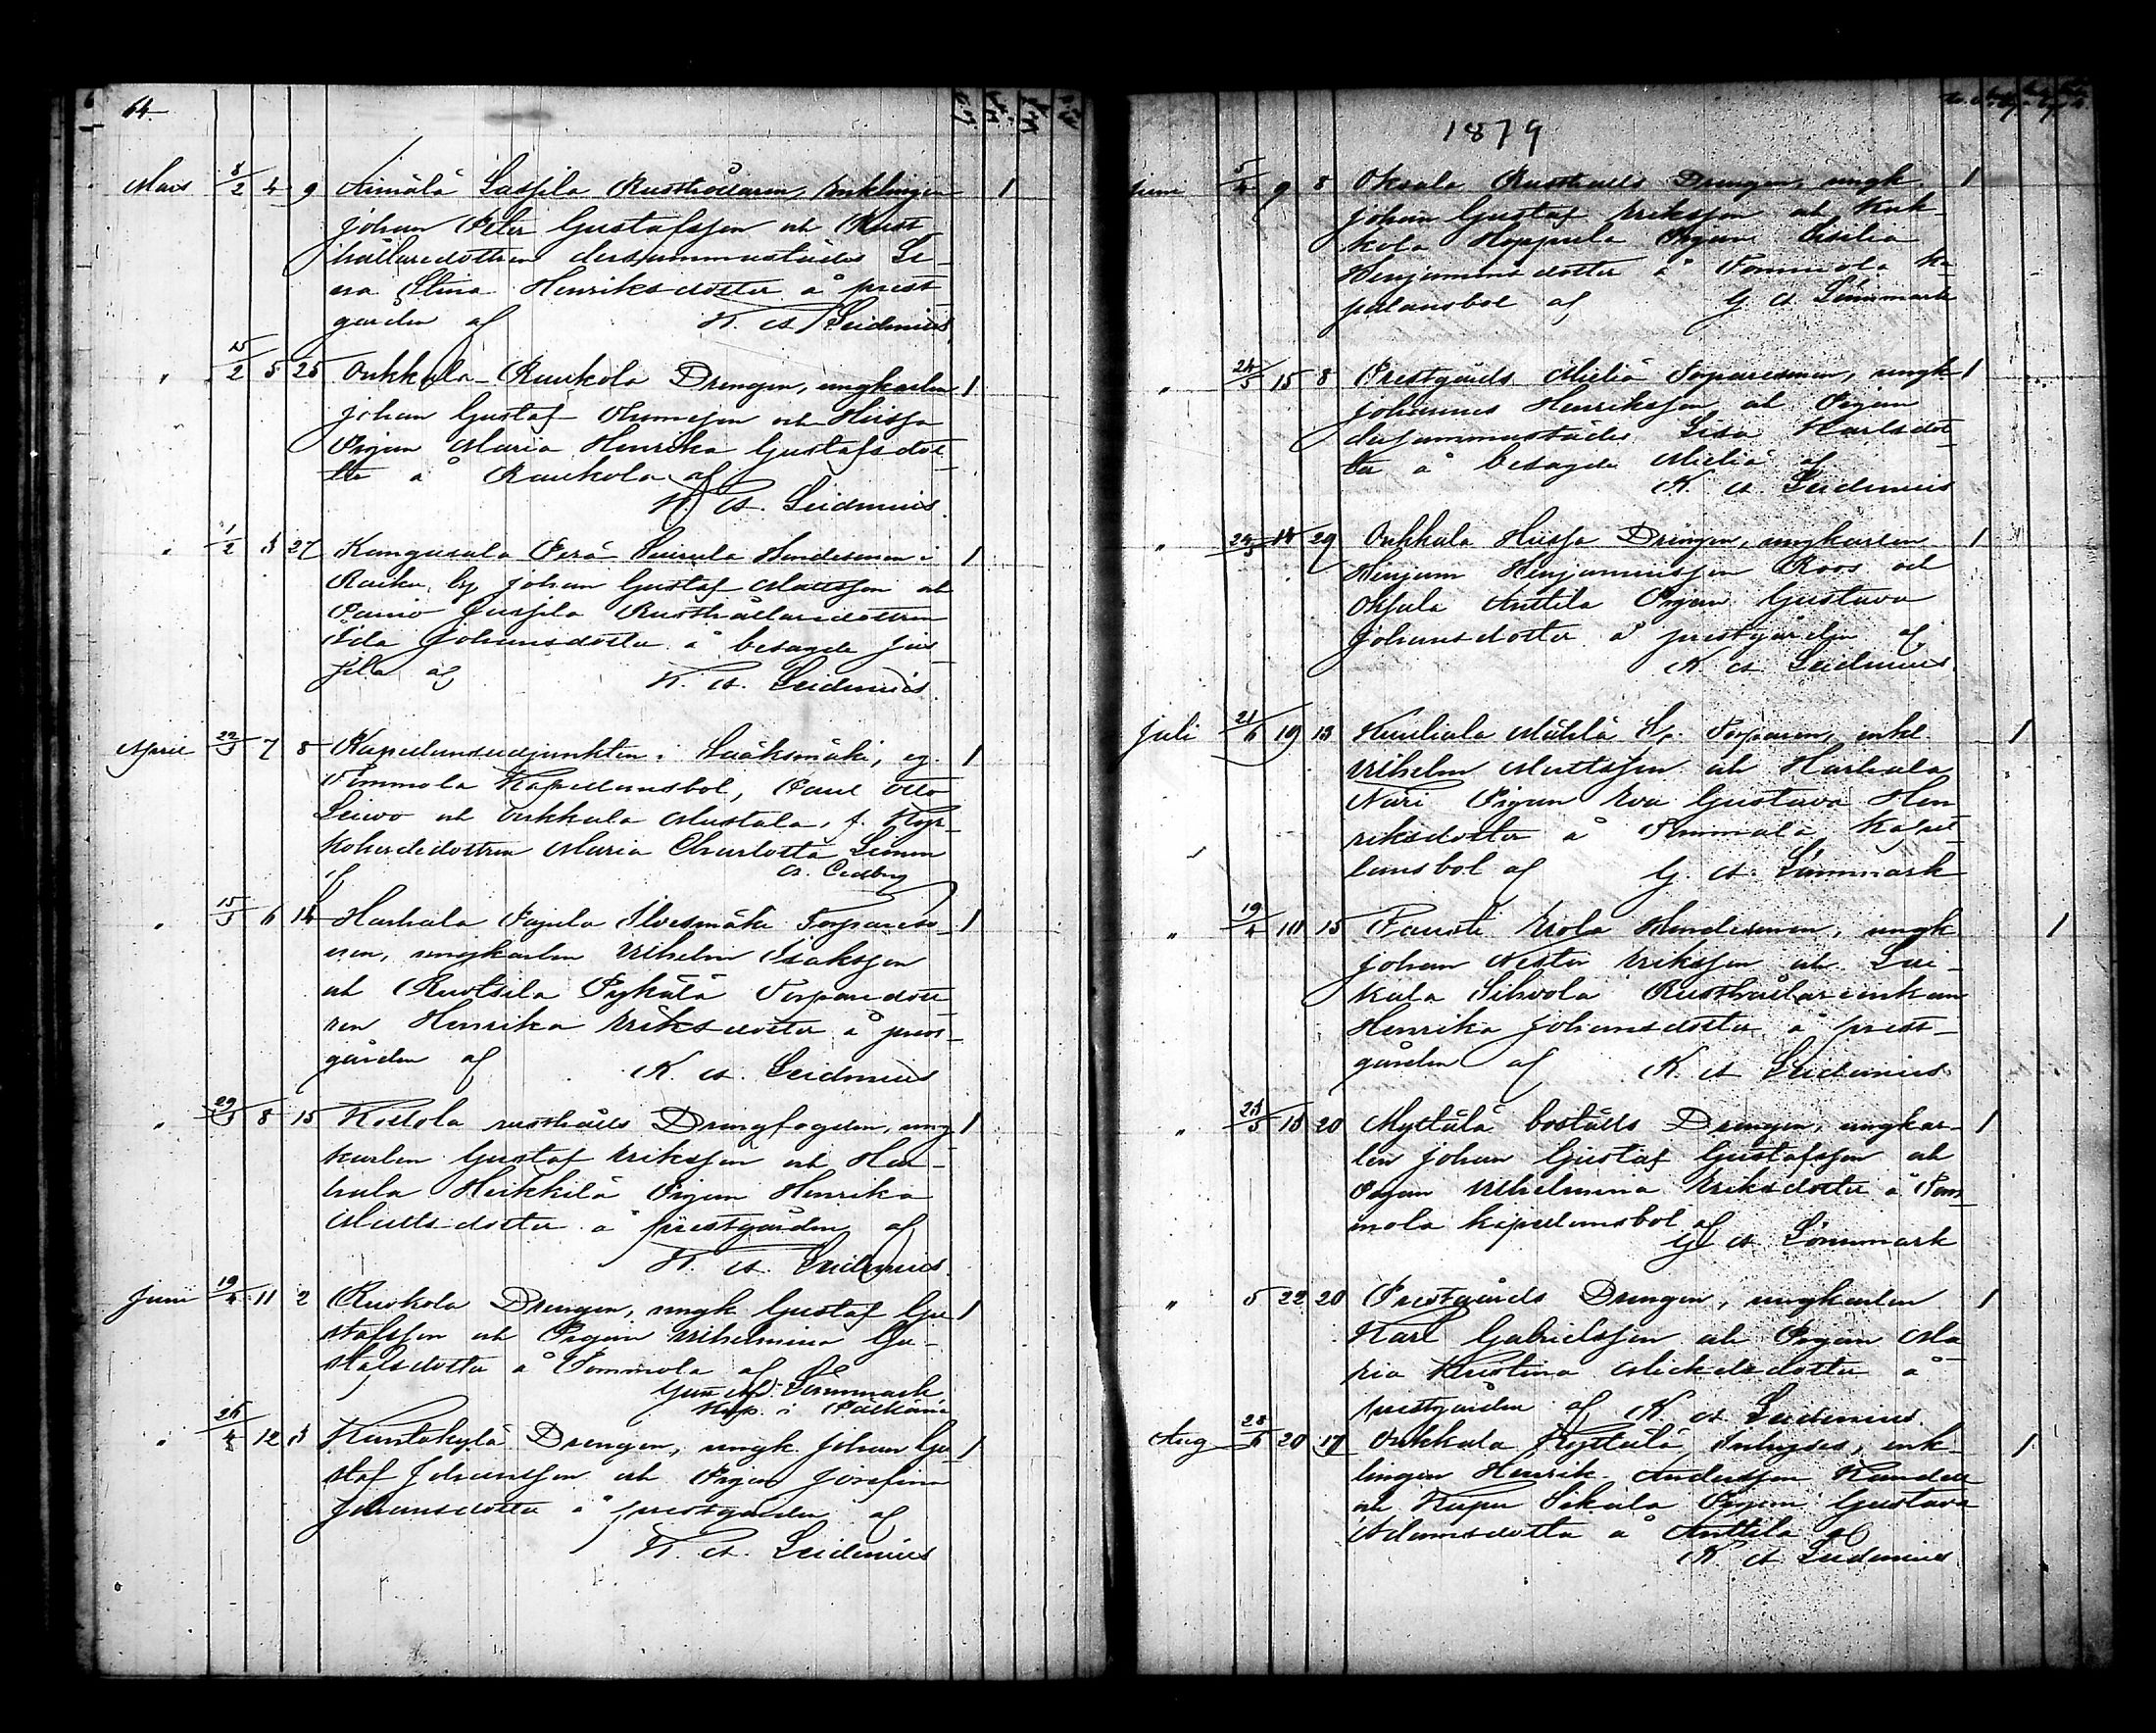 64
Mars 8/2 4 9 Aimälä Laspila Rusthållaren, Enklingen 1
Johan Peter Gustafsson och Rust
hållaredottren dersammastädes Le-
na Stina Henriksdotter å prest
gården af K. A. Leidenius
" 25/2 5 25 Onkkala Raukola Drengen, ungkarlen 1
Johan Gustaf och Hussa
Pigan Maria Henrika Gustafsdot-
ter å Raukola af
K. A. Leidenius.
" 1/2 3 27 Kangasala Perä Suurula Bondesonen i 1
by Johan Gustaf Mattsson och
Jussila Rusthållaredottren
Ida Johansdotter å besagde Jus-
sila af K. A. Leidenius.
April 22/3 7 8 Kapellansadjunkten i Sääksmäki, eg. 1
Tommola Kapellansbol, Paul Otto
Leivo och Onkkala Mustala, f.
Maria Charlotta
af A. Cedberg
" 15/3 6 14 Harhala Papula Ilvesmäki Torpareso- 1
nen, ungkarlen Vilhelm Isaksson
och Ruotsila Pykälä Torparedott
ren Henrika Eriksdotter å prest-
gården af K. A. Leidenius
" 29/3 8 15 Kostola rusthålls Drengfogden, ung 1
karlen Gustaf Eriksson och Har-
hala Heikkilä Pigan Henrika
Mattsdotter å prestgården af
K. A. Leidenius.
Juni 19/4 11 2 Ruokola Drengen, ungk. Gustaf Gu 1
stafsson och Pigan Vilhelmina Gu-
stafsdotter å Tommola af
Lönnmark
Kap. i Pälkäne
" 26/4 12 3 Kantokylä Drengen, ungk. Johan Gu 1
staf Johansson och Pigan Josefina
Johansdotter å prestgården af
K. A. Leidenius
1879
Juni 5/4 9 8 Oksala Rusthålls Drengen, ungk. 1
Johan Gustaf Eriksson och Kuk-
kola Hoppula Pigan Cecilia
Benjaminsdotter å Tommola ka-
pelansbol af G. A. Lönnmark
" 24/5 15 8 Prestgårds Mieliä Torparesonen, ungk 1
Johannes Henriksson och Pigan
dersammastädes Lisa Karlsdot-
ter å besagde Mieliä af
K. A. Leidenius
" 24/5 14 29 Onkkala Hussa Drengen, ungkarlen 1
Benjam Benjaminsson Roos och
Oksala Anttila Pigan Gustava
Johansdotter å prestgården af
K. A. Leidenius
Juli 21/6 19 13 Mälilä Torparen, enkl. 1
Vilhelm Mattsson och Harhala
Nari Pigan Eva Gustava Hen
riksdotter å Tommola Kapel
lansbol af G. A. Lönnmark
" 19/4 10 15 Tausti Erola Bondesonen, ungk 1
Johan Nestor Eriksson och Lai-
kala Sihvola Rusthållareenkan
Henrika Johansdotter å prest-
gården af K. A. Leidenius
" 23/5 13 20 Myttälä boställs Drengen, ungkar- 1
len Johan Gustaf Gustafsson och
Pigan Vilhelmina Eriksdotter å Tom
mola kapellansbol af
G. A. Lönnmark
" 5 22 20 Prestgårds Drengen, ungkarlen 1
Karl Gabrielsson och Pigan Ma
ria Kristina Mickelsdotter å
prestgården af K. A. Leidenius.
Aug 28/6 20 17 Onkkala Inhyses, enk- 1
lingen Henrik Andersson
och Sikala Pigan Gustava
Adamsdotter å Anttila af
K. A. Leidenius